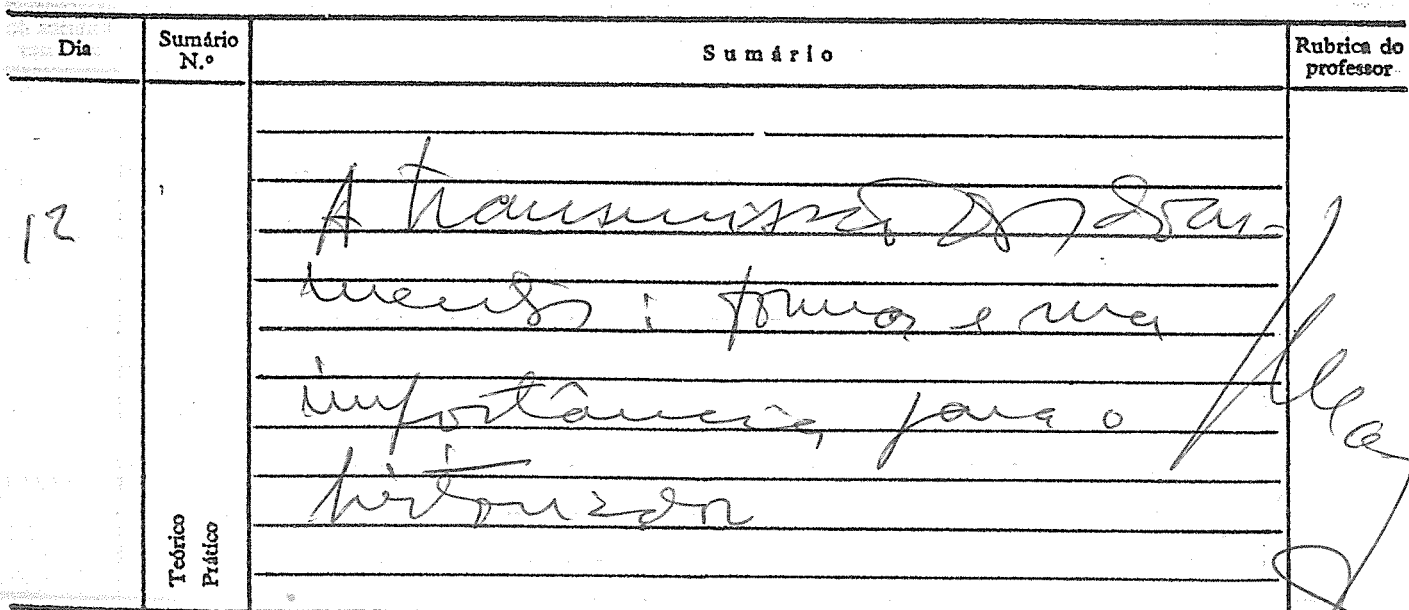 Dia
Sumário
N.º
Sumário
Rubrica do
professor
12
A transmissão dos docu-
mentos: formas e sua
importância para o
historiador
Teórico
Prático